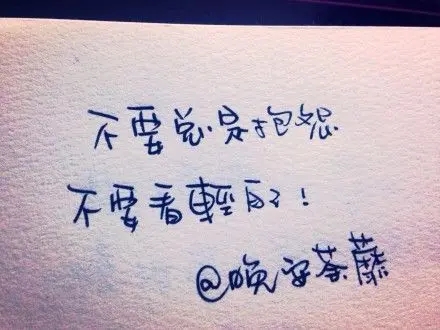 不要总是抱怨
不要看輕自己!
@晚安荼藤